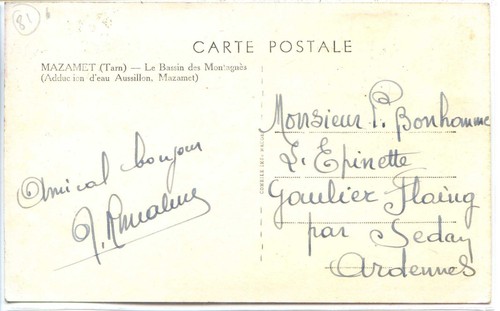 81
CARTE POSTALE
MAZAMET (Tarn) — Le Bassin des Montagnès
(Adduc ion d'eau Aussillon, Mazamet)
Amical bonjour
Monsieur P. Bonhomme
L'Epinette
Gaulier Flaing
par Sedan
Ardennes